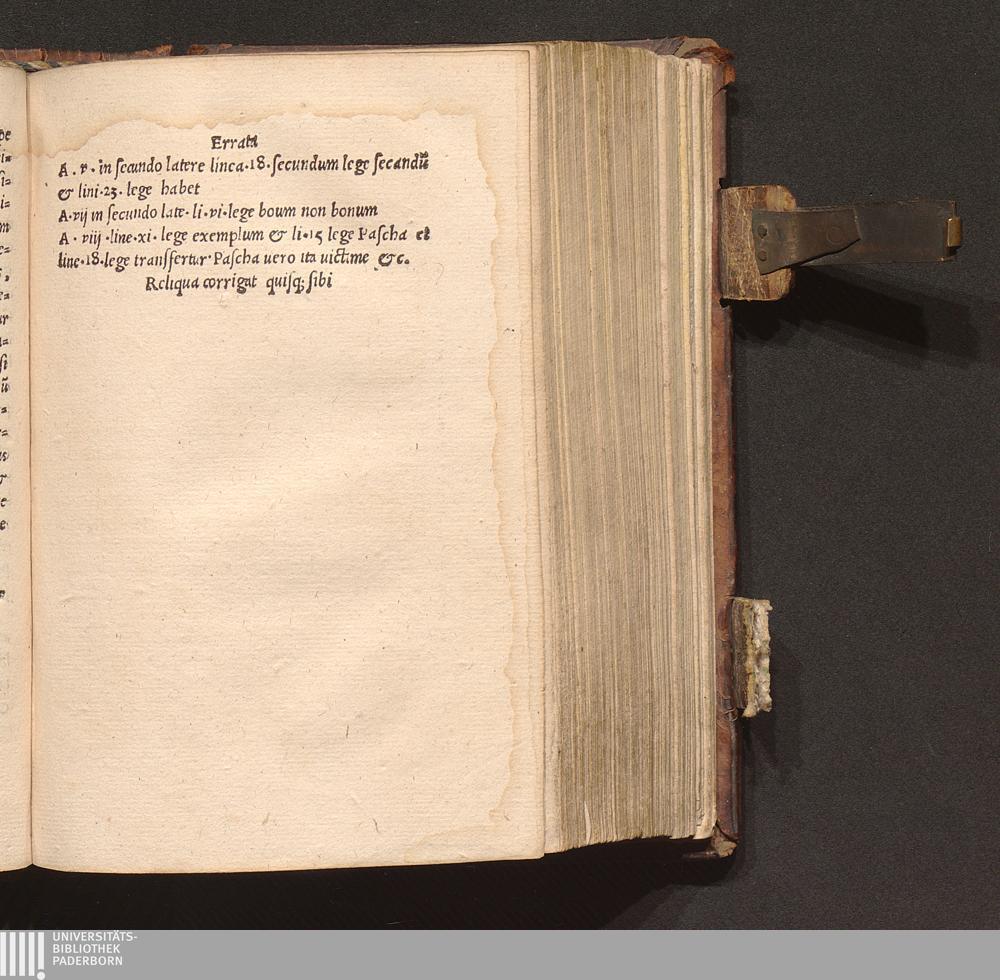 Errata
A . v . in secundo latere linea . 18 . secundum lege secandū
& lini . 23 . lege habet
A . vij in secundo late . li . vi . lege boum non bonum
A . viij . line . xi . lege exemplum & li . 15 lege Pascha et
line . 18 . lege transfertur . Pascha uero ita uictime &c.
Reliqua corrigat quisq; sibi
UNIVERSITÄTS-
BIBLIOTHEK
PADERBORN